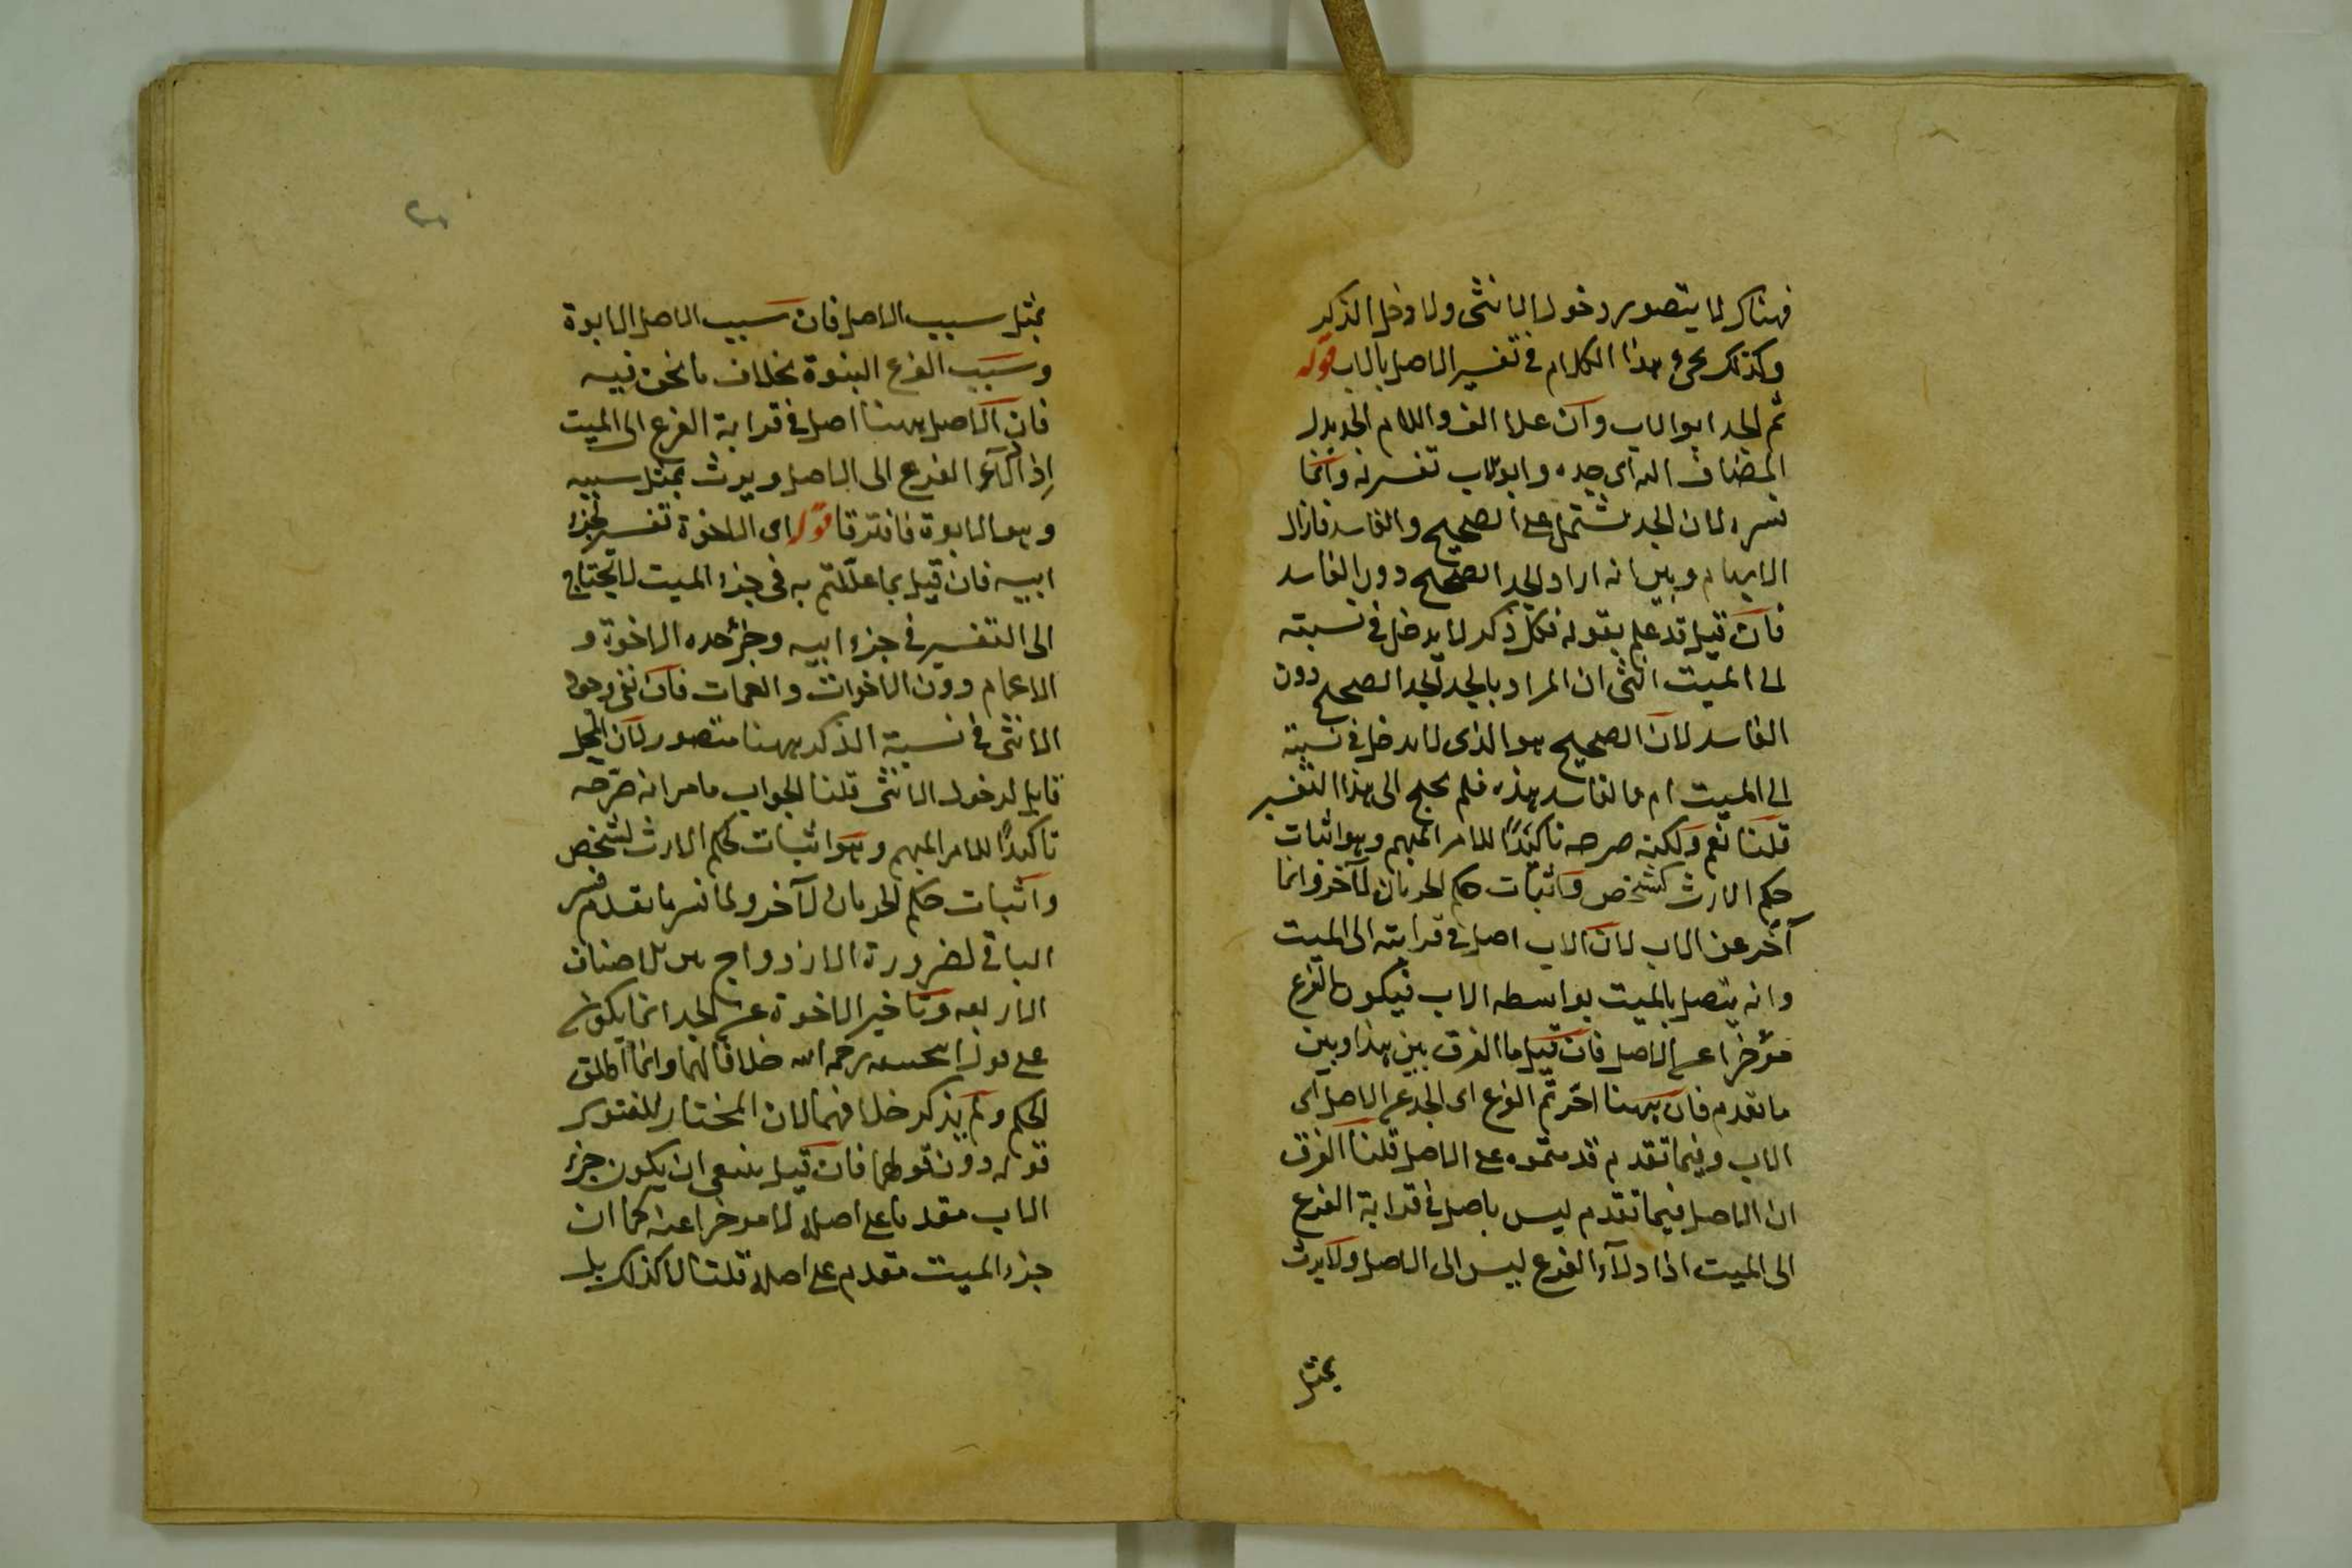 فهناك لا يتصور دخول الانثى ولا دخل الذكر
وكذلك يجرى هذا الكلام فى تفسير الاصل بالاب قوله
ثم الجد ابو الاب وان علا الف واللام الجد بدل
المضاف اليه اى جده وابو الاب تفسير له وانما
فسره لان الجد يشتمل على الصحيح والفاسد فازال
الابهام وبين انه اراد الجد الصحيح دون الفاسد
فان قيل قد علم بقوله فكل ذكر لا يدخل فى نسبته
الى الميت انثى ان المراد بالجد الجد الصحيح دون
الفاسد لان الصحيح هو الذى لا يدخل فى نسبته
الى الميت ام والفاسد هذه فلم يحتج الى هذا التفسير
قلنا نعم ولكنه صرحه تاكيدًا للامر المبهم وهو اثبات
حكم الارث لشخص واثبات حكم الحرمان لآخر وانما
آخر عن الاب لان الاب اصل فى قرابته الى الميت
وانه يتصل بالميت بواسطه الاب فيكون الفرع
مؤخرا عن الاصل فان قيل ما الفرق بين هذا وبين
ما تقدم فان ههنا اخرتم الفرع اى الجد عن الاصل اى
الاب وفيما تقدم قدمتموه على الاصل قلنا الفرق
ان الاصل فيما تقدم ليس باصل فى قرابة الفرع
الى الميت اذ ادلاء الفرع ليس الى الاصل ولا يرث
بمثل
بمثل سبب الاصل فان سبب الاصل الابوة
وسبب الفرع البنوة بخلاف ما نحن فيه
فان الاصل ههنا اصل فى قرابة الفرع الى الميت
اذ ادلاء الفرع الى الاصل ويرث بمثل سببه
وهو الابوة فافترقا قوله اى الاخوة تفسير لجزء
ابيه فان قيل بما عللتم به فى جزء الميت لا يحتاج
الى التفسير فى جزء ابيه وجزء جده الاخوة و
الاعمام دون الاخوات والعمات فان نفى دخول
الانثى فى نسبة الذكر ههنا متصور لان المحل
قابل لدخول الانثى قلنا الجواب ما مر انه صرحه
تاكيدًا للامر المبهم وهو اثبات حكم الارث لشخص
واثبات حكم الحرمان لآخر ولما فسر ما تقدم فسر
الباقى لضرورة الازدواج بين الاصناف
الاربعه وتاخير الاخوة عن الجد انما يكون
على قول ابى حنيفه رحمه الله خلافا لهما وانما اطلق
الحكم ولم يذكر خلافهما لان المختار للفتوى
قوله دون قولهما فان قيل ينبغى ان يكون جزء
الاب مقدما على اصله لا مؤخرا عنه كما ان
جزء الميت مقدم على اصله قلنا لا كذلك بل